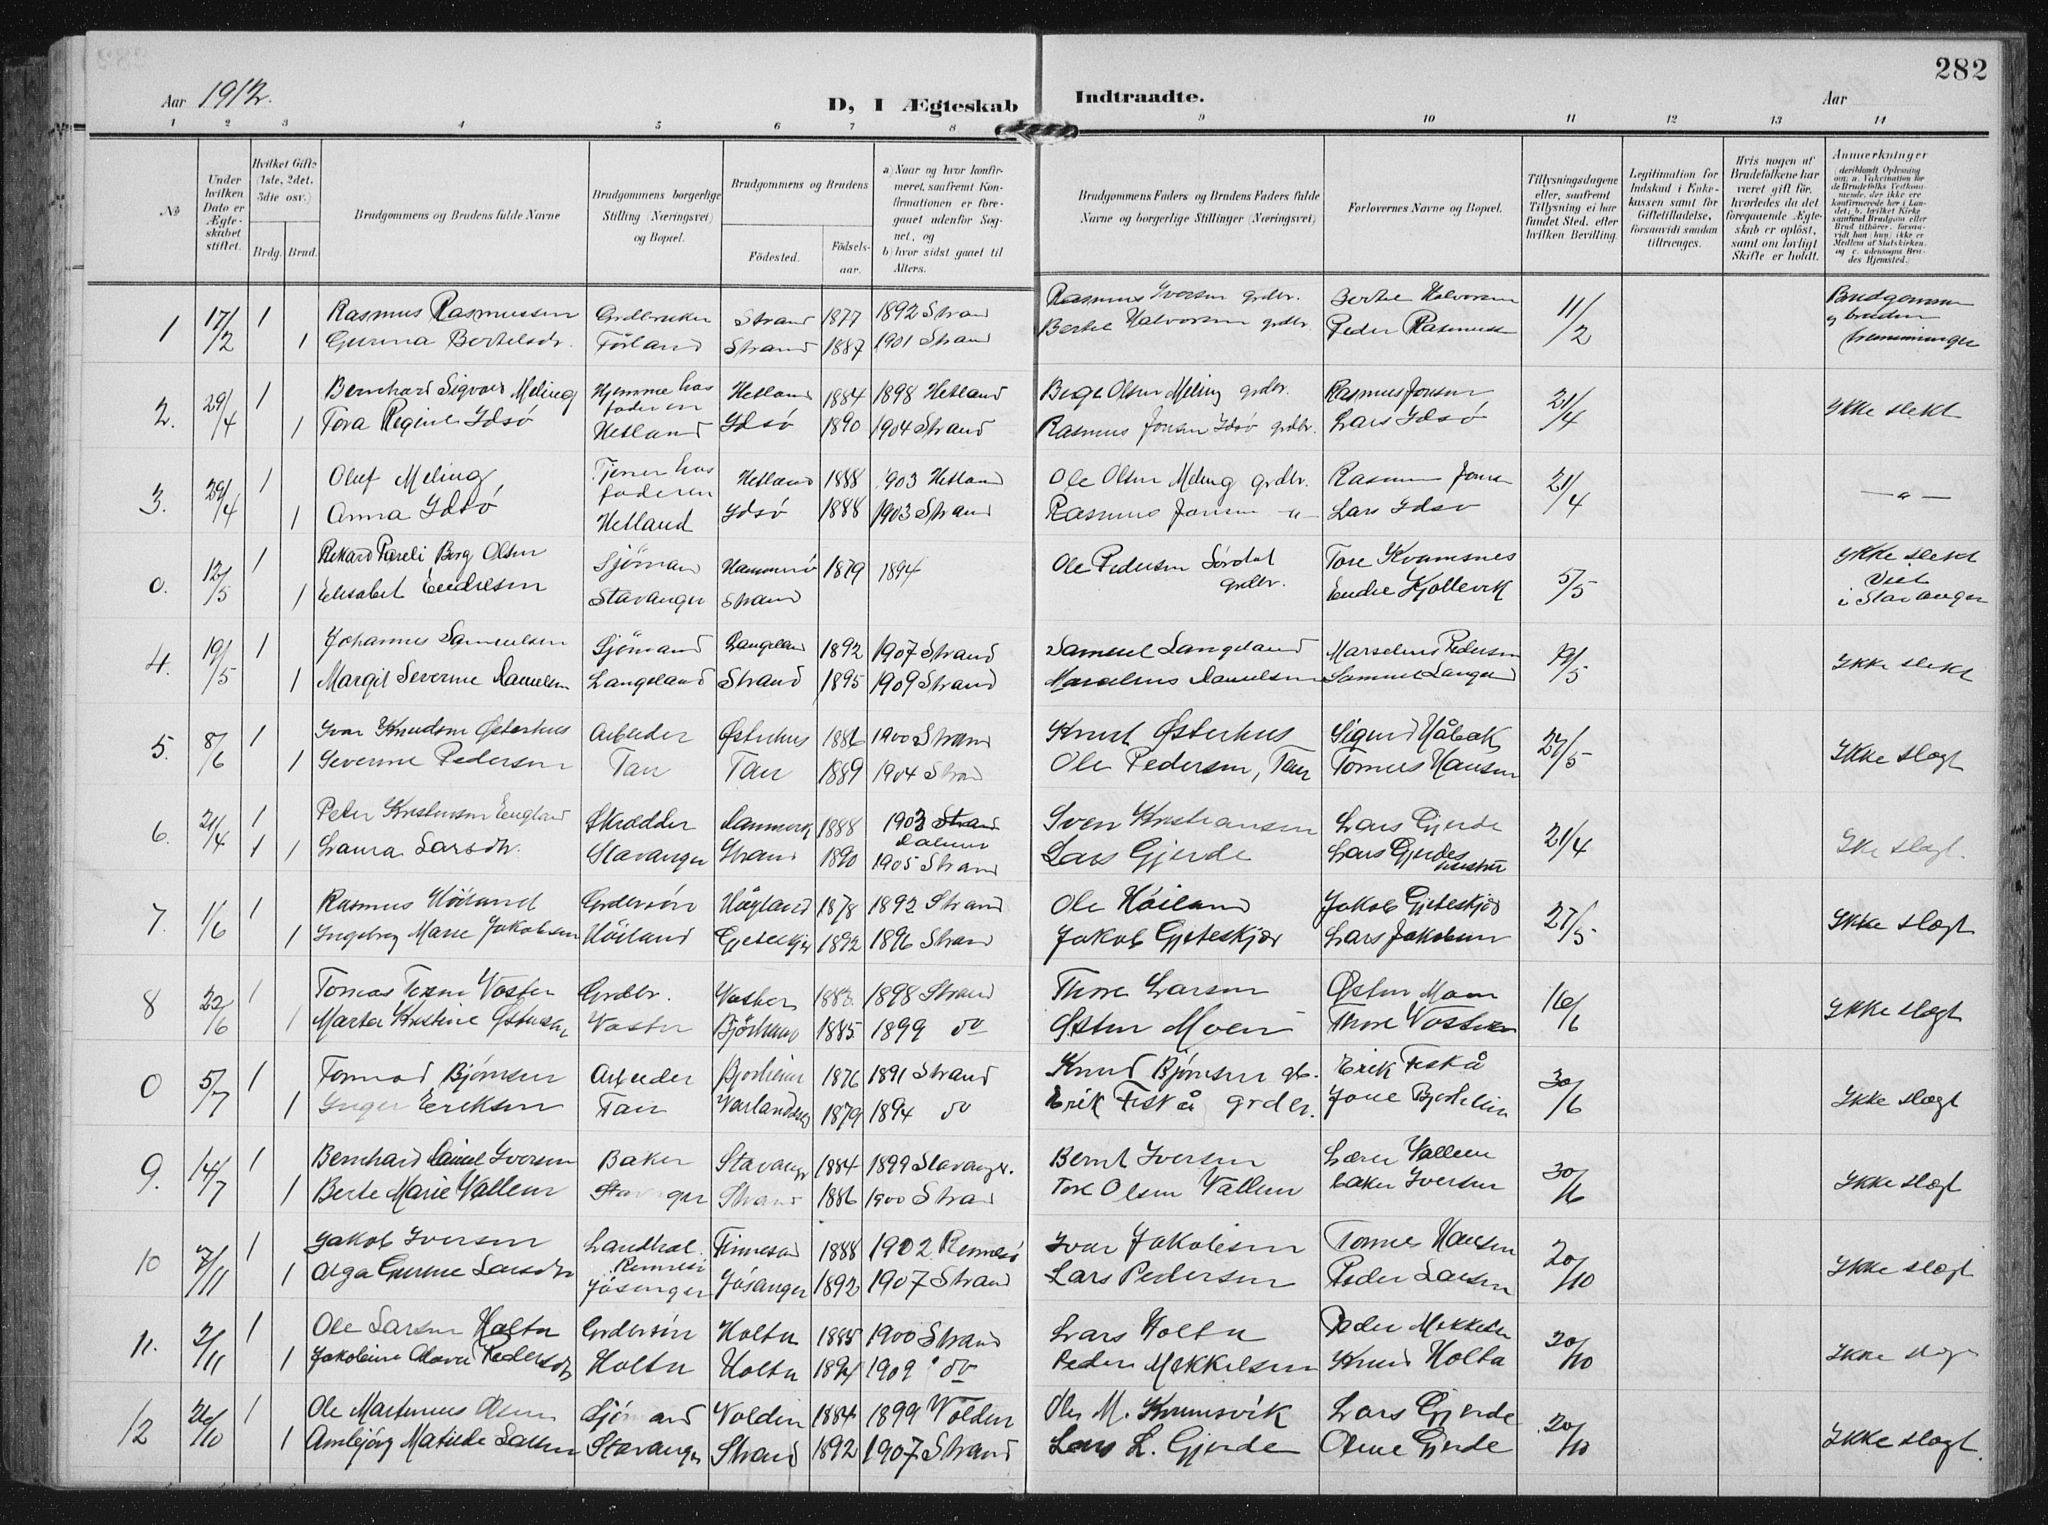 282
Aar 1912.
D, I Ægteskab Indtraadte.
Aar
1 2 3 4 5 6 7 8 9 10 11 12 13 14
No
Under hvilken Dato er Ægteskabet stiftet.
Hvilket Gifte (1ste, 2det, 3die osv.)
Brdg. Brud.
Brudgommens og Brudens fulde Navne
Brudgommens borgerlige Stilling (Næringsvei) og Bopæl.
Brudgommens og Brudens
Fødested. Fødselsaar.
a) Naar og hvor konfirmeret, saafremt Konfirmationen er foregaaet udenfor Sognet, og
b) hvor sidst gaaet til Alters.
Brudgommens Faders og Brudens Faders fulde Navne og borgerlige Stillinger (Næringsvei)
Forlovernes Navne og Bopæl.
Tillysningsdagene eller, saafremt Tillysning ei har fundet Sted, efter hvilken Bevilling.
Legitimation for Indskud i Enkekassen samt for Giftetilladelse, forsaavidt saadan tiltrænges.
Hvis nogen af Brudefolkene har været gift før, hvorledes da det foregaaende Ægteskab er opløst, samt om lovligt Skifte er holdt.
Anmærkninger
1 17/2 1 Rasmus Rasmussen Grdbruker Strand 1877 1892 Strand Rasmus Iversen grdbr. Bertel Halvorsen 11/2 Brudgommen
1 Gurina Bertelsdr. Førland Strand 1887 1901 Strand Bertel Halvorsen grdbr. Peder Rasmussen og bruden
2. 29/4 1 Bernhard Sigvard Meling Hjemme hos faderen Hetland 1884 1898 Hetland Olsen Meling grdbr. Rasmus Jonsen 21/4 Ikke slekt
1 Tora Regine Idsø Hetland Idsø 1890 1904 Strand Rasmus Jonsen Idsø grdbr. Lars Idsø
3. 29/4 1 Oluf Meling Tjener hos faderen Hetland 1888 1903 Hetland Ole Olsen Meling grdbr. Rasmus Jonsen 21/4 — " —
1 Anna Idsø Hetland Idsø 1888 1903 Strand Rasmus Jonsen " Lars Idsø
0. 12/5 1 Rikard Pareli Berg Olsen Sjømand Hammerø 1879 1894 Ole Pedersen Sørdal grdbr. Tore Kvamsnes 5/5 Ikke slekt
1 Elisabet Endresen Stavanger Strand Endre Kjøllevik Viet i Stavanger
4. 19/5 1 Johannes Samuelsen Sjømand Langeland 1892 1907 Strand Samuel Langeland Marselius Pedersen 19/5 Ikke slekt
1 Margit Severine Langeland Strand 1895 1909 Strand Samuel Langeland
5. 8/6 1 Ivar Knudsen Østerhus Arbeider Østerhus 1886 1900 Strand Knut Østerhus Sigurd Håbak 27/5 Ikke slegt
1 Severine Pedersen Tau Tau 1889 1904 Strand Ole Pedersen, Tau Tomas Hansen
6. 21/4 1 Peter Kristensen England Skrædder Danmark 1888 1903 Sven Kristiansen Lars Gjerde 21/4 Ikke slegt
1 1 Laura Larsdtr. Stavanger Strand 1890 1905 Strand Lars Gjerde Lars Gjerdes hustru
7. 1/6 1 Rasmus Høiland Gardersøn Høgland 1878 1892 Strand Ole Høiland Jakob Gjeteskjør 27/5 Ikke slegt
1 Ingeborg Marie Jakobsen Høiland Gjeteskjør 1892 1896 Strand Jakob Gjeteskjør Lars Jakobsen
8 22/6 1 Tomas Voster Grdbr. Voster 1882 1898 Strand Thore Larsen Østen Moen 16/6 Ikke slegt
1 Marta Kristine Østensen Voster 1885 1899 do Østen Moen Thore Voster
0 5/7 1 Tormod Bjørnsen Arbeider Bjørheim 1876 1891 Strand Knud Bjørnsen gb. Erik Fiskå 30/6 Ikke slegt
1 Inger Eriksen Tau 1879 1894 do Erik Fiskå grdbr. Jone Bjørheim
9. 14/7 1 Bernhard Daniel Iversen Baker Stavanger 1884 1899 Stavanger. Bernt Iversen Lærer Vallem 30/6 Ikke slegt
1 Berte Marie Vallem Stavanger Strand 1886 1900 Strand Tore Olsen Vallem baker Iversen
10 7/11 1 Jakob Iversen Landhal. Rennesø Finnesand 1888 1902 Rennesø Ivar Jakobsen Tomas Hansen 20/10 Ikke slegt
1 Olga Gurine Larsdtr Jøsenger Jøsanger 1892 1907 Strand Lars Pedersen Peder Larsen
11. 2/11 1 Ole Larsen Holta Gardersøn Holta 1885 1900 Strand Lars Holta Peder Mikkelsen 20/10 Ikke slegt
1 Jakobine Olava Pedersdtr Holta Holta 1894 1909 do Peder Mikkelsen Knud Holta
12 26/10 1 Ole Martinius Olsen Sjømand Volden 1884 1899 Volden Ole M. Kvamsvik Lars Gjerde 20/10 Ikke slegt
1 Ambjørg Matilde Larsen Stavanger Strand 1892 1907 Strand Lars L. Gjerde Gjerde